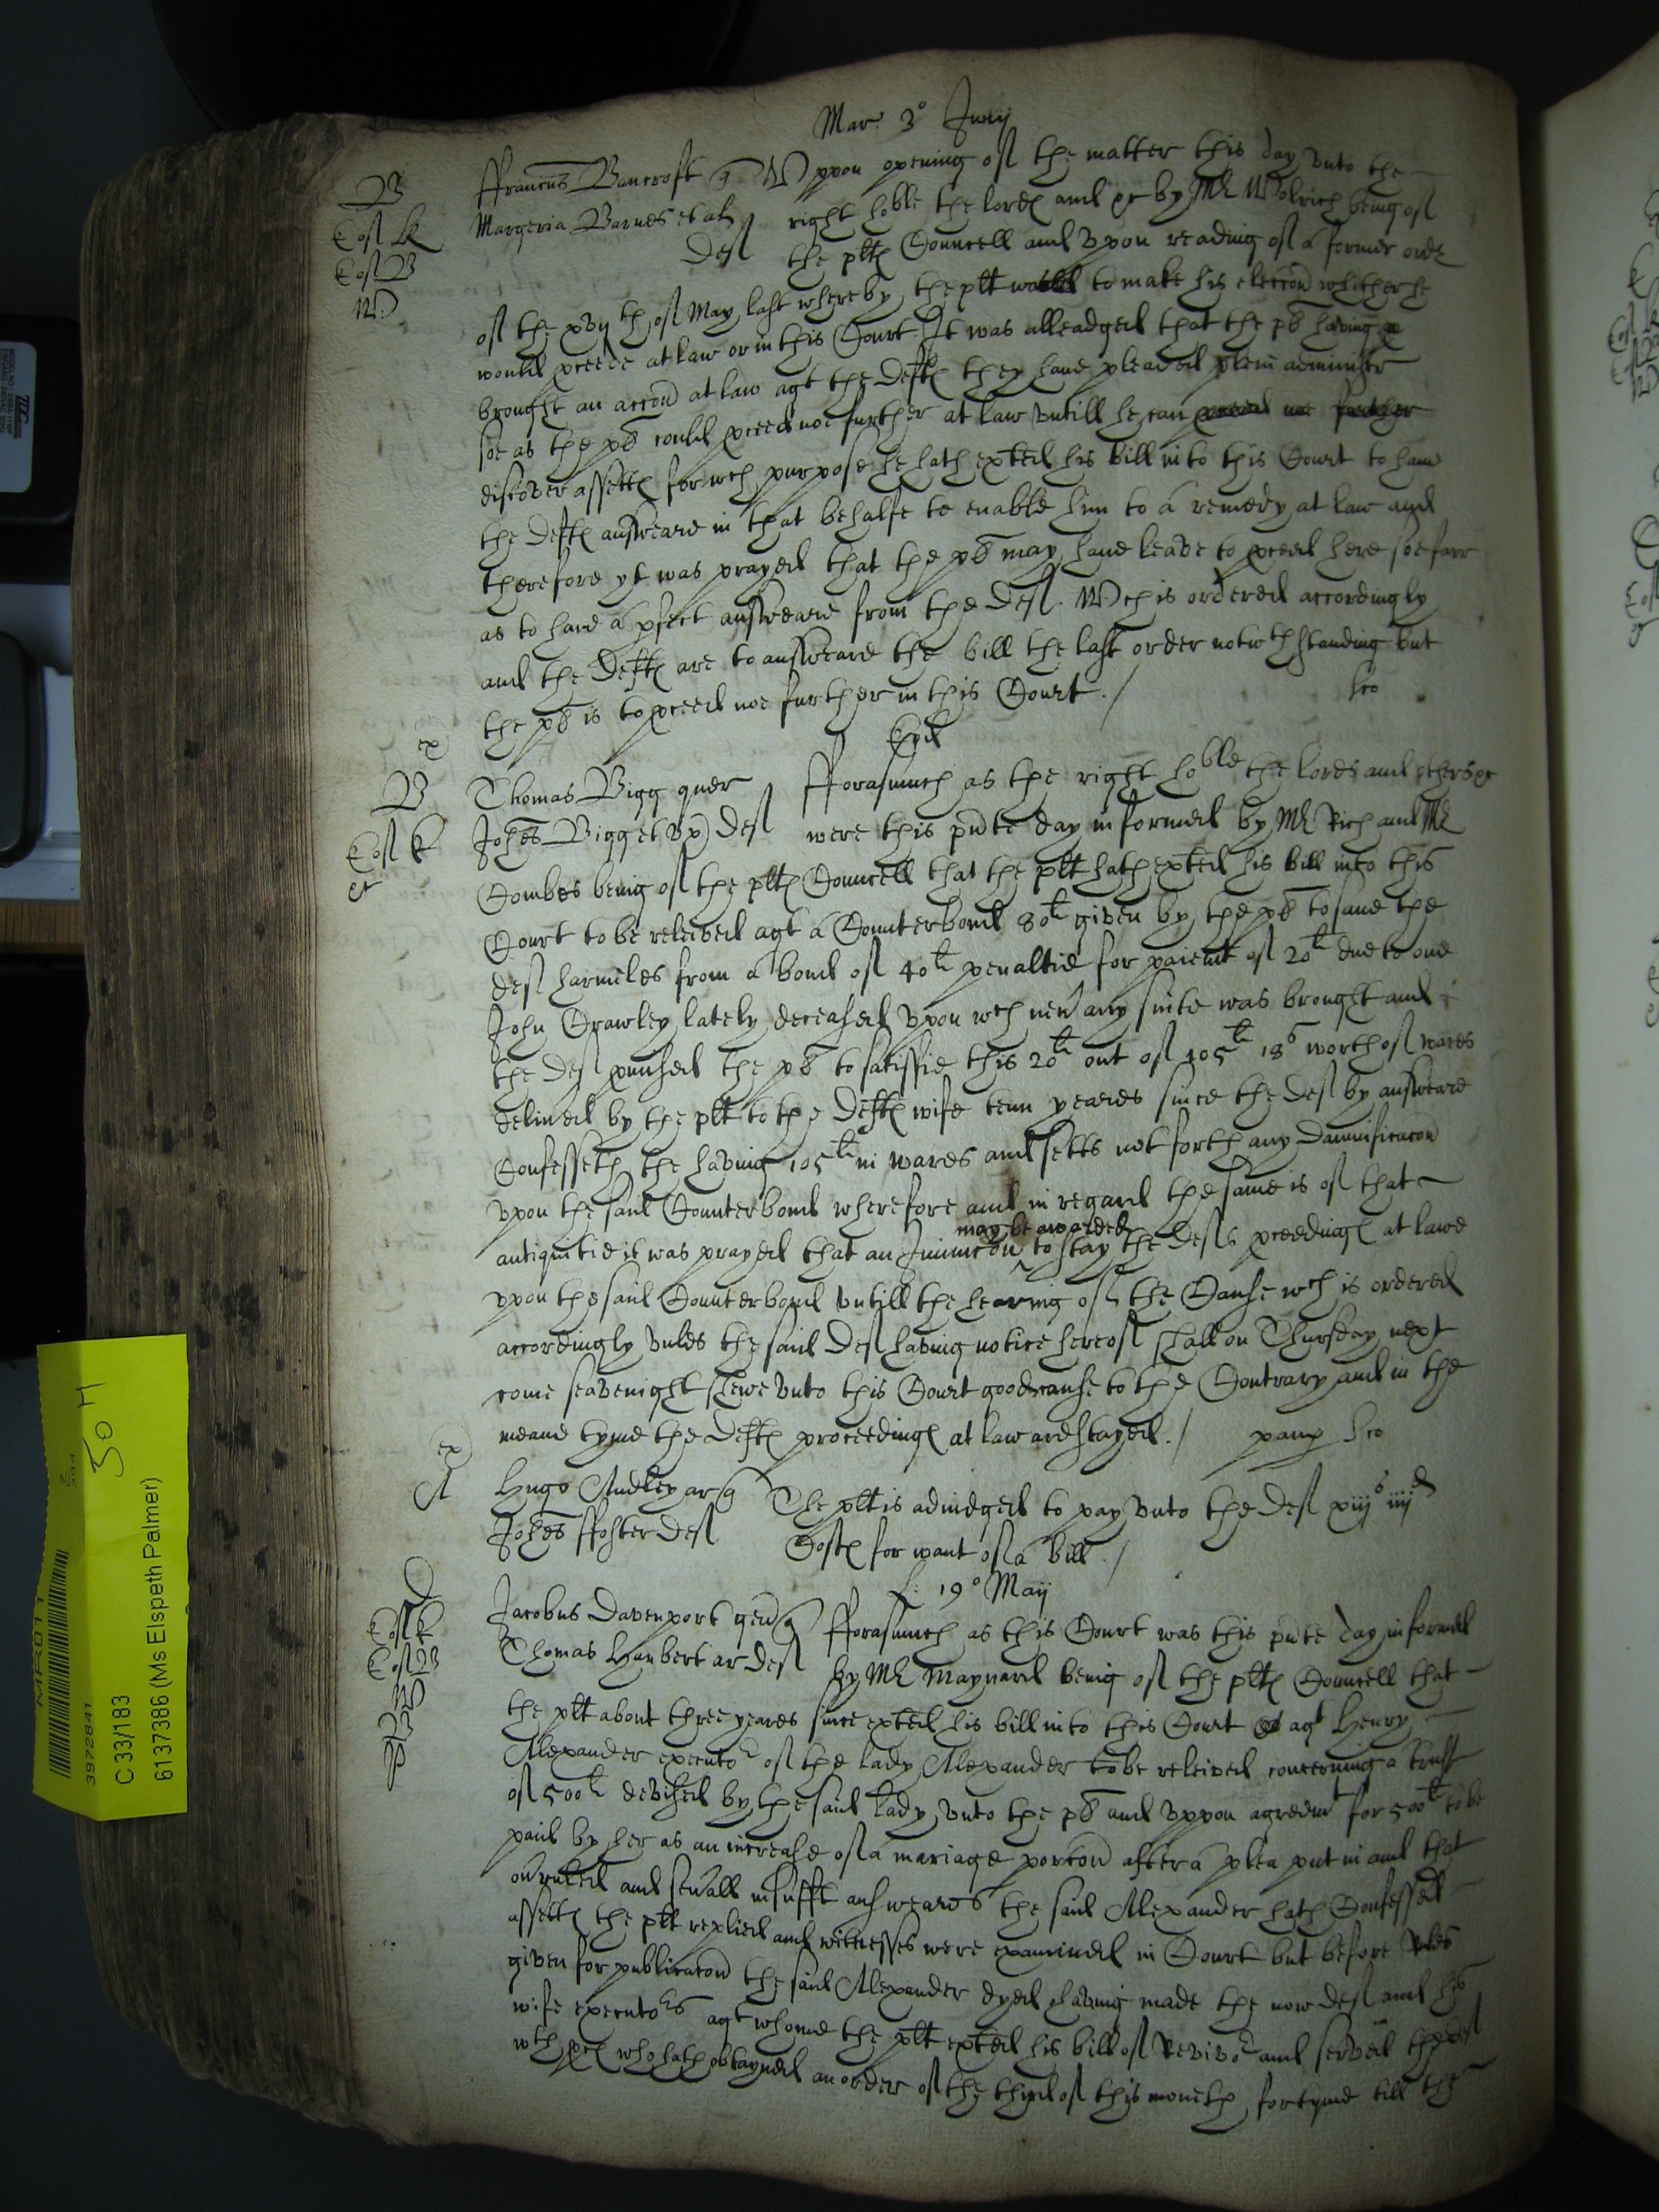 Mar. 3° Junij
B
ffrancus Bancroft q Uppon opening of the matter this day unto the
Margeria Barnes et al right hoble the lordes and &c by Mr Wolrich being of
def the pltes Councell and upon reading of a former order
of the xvijth of May last whereby the plt to make his eleccon whither he
would pceede at law or in this Court It was alleadged that the pt having
brought an accon at law agt the deftes they have pleaded plein administr
soe as the pt could pceed noe further at law untill he can
discover assettes for wch purpose he hath exted his bill into this Court to have
the deftes answeare in that behalfe to enable him to a remedy at law and
therefore yt was prayed that the pt may have leave to pceed here soe farr
as to have a pfect answeare from the def. Wch is ordered accordingly
and the deftes are to answeare the bill the last order notwthstanding but
the pt is to pceed noe further in this Court. /
Eod
B
Thomas Bigg quer fforasmuch as the right hoble the lordes and others &c
Johes Bigg et ux def were this pnte day informed by Mr Rich and Mr
Combes being of the pltes Councell that the plt hath exted his bill into this
Court to be releived agt a Counterbond 80li given by the pt to save the
def harmeles from a bond of 40li penaltie for paiemt of 20li due to one
John Crawley lately deceased upon wch nev any suite was brought and
the def the pt to satisfie this 20li out of 105li 18s worth of wares
delived by the plt to the deftes wife tenn yeares since the def by answeare
Confesseth the having 105li in wares and setts not forth any damnificacon
upon the said Counterbond wherefore and in regard the same is of that
may be awarded
antiquitie it was prayed that an Iniuncon to stay the defs pceedinges at lawe
uppon the said Counterbond untill the hearing of the Cause wch is ordered
accordingly unles the said def having notice hereof shall on Thursday next
come seavenight shewe unto this Court good cause to the Contrary and in the
meane tyme the deftes proceedinges at law are stayed. /
A
Hugo Audley ar q The plt is adiudged to pay unto the def xiijs iiijd
Johes ffoster def Costes for want of a bill. /
19° Maij
D
Jacobus Davenport gen q fforasmuch as this Court was this pnte day informed
Thomas Hanbert ar def by Mr Maynard being of the pltes Councell that
the plt about three yeares since exted his bill into this Court agt Henry
Alexander executor of the lady Alexander to be releived concerning a trust
of 500li devised by the said lady unto the pt and uppon agreemt for 500li to be
paid by her as an increase of a mariage porcon after a plea put in and that
ovruled and sevall insufft answeares the said Alexander hath Confessed
assettes the plt replied and witnesses were examined in Court but before rules
given for publicacon the said Alexander dyed having made the now def and his
wife executors agt whome the plt exted his bill of Revivor and served the def
wth pces who hath obtayned an order of the third of this moneth for tyme till the
MR011
3972841
C 33/183
6137386 (Ms Elspeth Palmer)
30 H